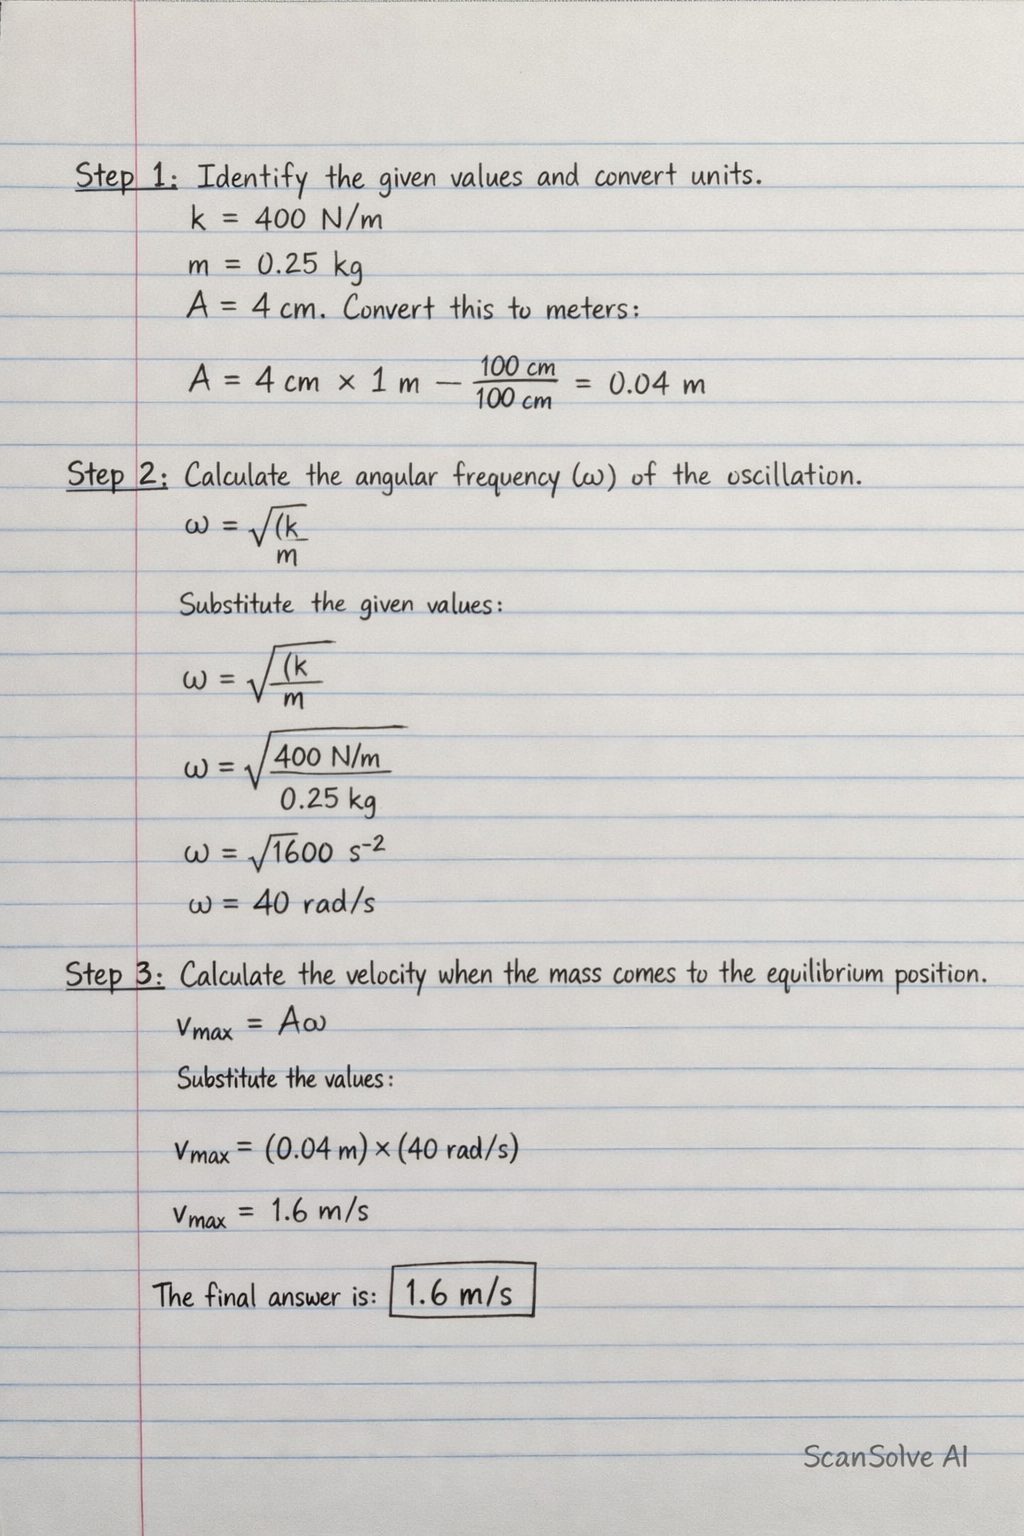 Step 1: Identify the given values and convert units.
k = 400 N/m
m = 0.25 kg
A = 4 cm. Convert this to meters:
A = 4 cm × 1 m — 100 cm / 100 cm = 0.04 m
Step 2: Calculate the angular frequency (ω) of the oscillation.
ω = √(k / m
Substitute the given values:
ω = √(k / m
ω = √400 N/m / 0.25 kg
ω = √1600 s⁻²
ω = 40 rad/s
Step 3: Calculate the velocity when the mass comes to the equilibrium position.
vmax = Aω
Substitute the values:
vmax = (0.04 m) × (40 rad/s)
vmax = 1.6 m/s
The final answer is: 1.6 m/s
ScanSolve AI